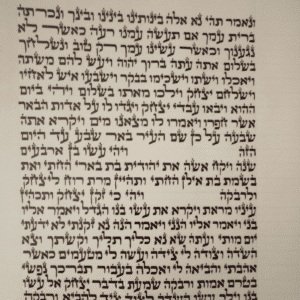 ונאמר תהי נא אלה בינותינו בינינו ובינך ונכרתה
ברית עמך אם תעשה עמנו רעה כאשר לא
נגענוך וכאשר עשינו עמך רק טוב ונשלחך
בשלום אתה עתה ברוך יהוה ויעש להם משתה
ויאכלו וישתו וישכימו בבקר וישבעו איש לאחיו
וישלחם יצחק וילכו מאתו בשלום ויהי ביום
ההוא ויבאו עבדי יצחק ויגדו לו על אדות הבאר
אשר חפרו ויאמרו לו מצאנו מים ויקרא אתה
שבעה על כן שם העיר באר שבע עד היום
הזה ויהי עשו בן ארבעים
שנה ויקח אשה את יהודית בת בארי החתי ואת
בשמת בת אילן החתי ותהיין מרת רוח ליצחק
ולרבקה ויהי כי זקן יצחק ותכהין
עיניו מראת ויקרא את עשו בנו הגדל ויאמר אליו
בני ויאמר אליו הנני ויאמר הנה נא זקנתי לא ידעתי
יום מותי ועתה שא נא כליך תליך וקשתך וצא
השדה וצודה לי צידה ועשה לי מטעמים כאשר
אהבתי והביאה לי ואכלה בעבור תברכך נפשי
בטרם אמות ורבקה שמעת בדבר יצחק אל עשו
בנו וילך עשו השדה לצוד ציד להביא ורבקה